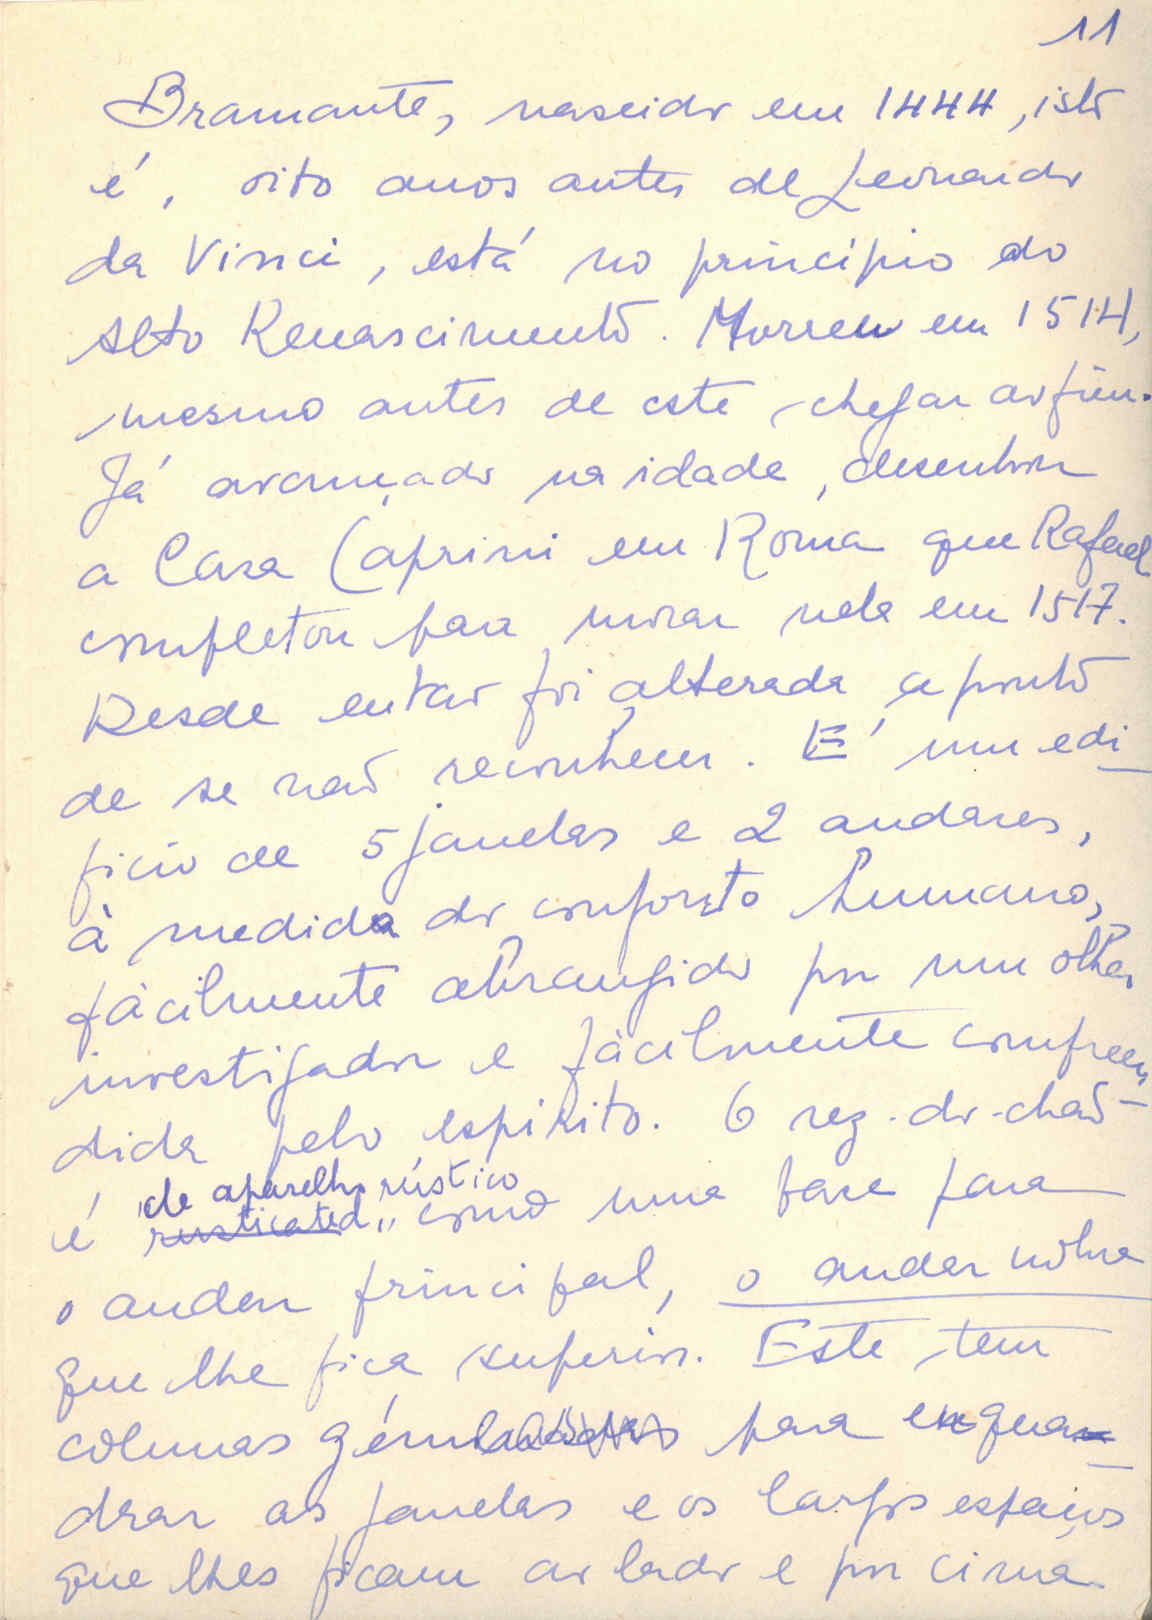 11
Bramante, nascido em 1444, isto
é, oito anos antes de Leonardo
da Vinci, está no princípio do
Alto Renascimento. Morreu em 1514,
mesmo antes de este chegar ao fim.
Já avançado na idade, desenhou
a Casa Caprini em Roma que Rafael
completou para morar nela em 1517.
Desde então foi alterada a ponto
de se não reconhecer. É um edi
fício de 5 janelas e 2 andares,
à medida do conforto humano,
fàcilmente abrangido por um olhar
investigador e fàcilmente compreen
dida pelo espírito. O rez-do-chaõ
de aparelho rústico
é rusticated,, como uma base para
o andar principal, o andar nobre
que lhe fica superior. Este tem
colunas gémeas para enqua
drar as janelas e os largos espaços
que lhes ficam ao lado e por cima.